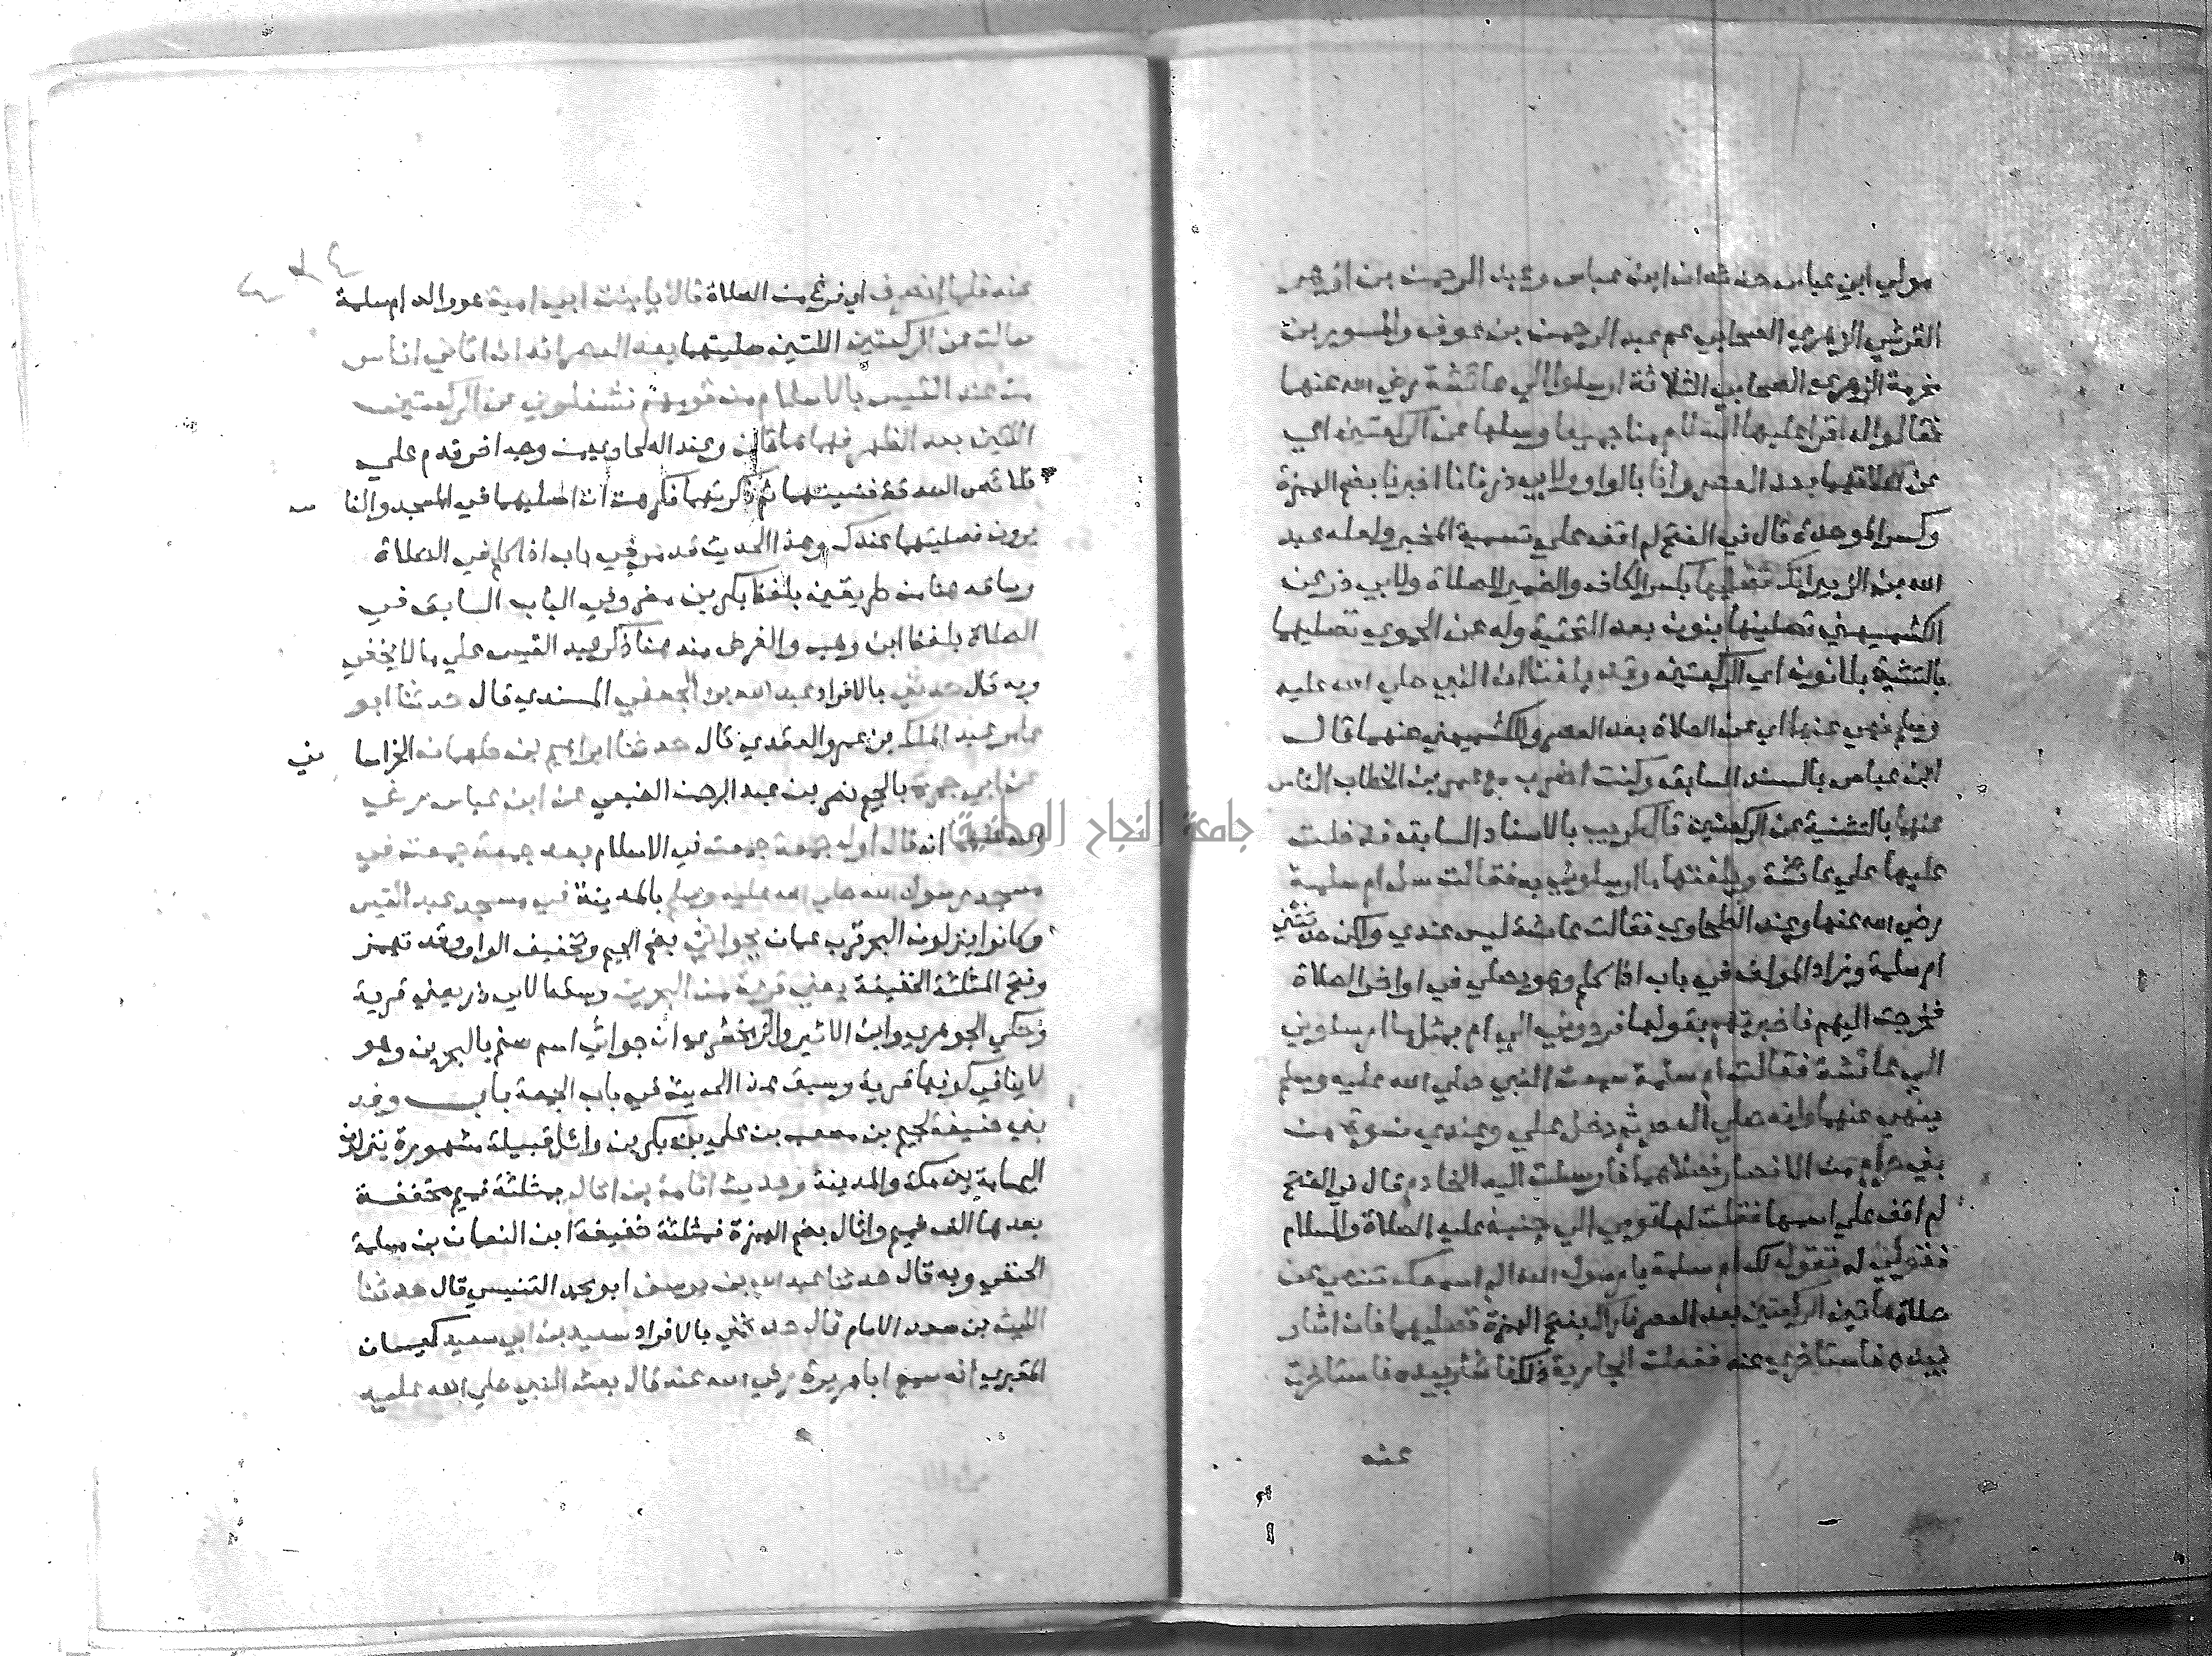 مولي ابن عباس حدثه ان ابن عباس وعبد الرحمن بن ازهر
القرشي الزهري الصحابي عم عبد الرحمن بن عوف والمسور بن
مخرمة الزهري الصحابي الثلاثة ارسلوا الي عائشة رضي الله عنها
فقالوا له اقرا عليها السلام منا جميعا وسلها عن الركعتين اي
عن صلاتهما بعد العصر وانا بالواو ولابي ذر فانا اخبرنا بضم الهمزة
وكسر الموحدة قال في الفتح لم اقف علي تسمية المخبر ولعله عبد
الله بن الزبير انك تصليها بكسر الكاف والضمير للصلاة ولابي ذر عن
الكشميهني تصلينها بنون بعد التحتية وله عن الحموي تصليهما
بالتثنية بلا نون اي الركعتين وقد بلغنا ان النبي صلي الله عليه
وسلم نهي عنها اي عن الصلاة بعد العصر وللكشميهني عنهما قال
ابن عباس بالسند السابق وكنت اضرب مع عمر بن الخطاب الناس
عنهما بالتثنية عن الركعتين قال كريب بالاسناد السابق فدخلت
عليها علي عائشة وبلغتها ما ارسلوني به فقالت سل ام سلمة
رضي الله عنها وعند الطحاوي فقالت عائشة ليس عندي ولكن حدثتني
ام سلمة وزاد المولف في باب اذا كلم وهو يصلي في اواخر الصلاة
فخرجت اليهم فاخبرتهم بقولها فردوني الي ام سلمة بمثل ما ارسلوني
الي عائشة فقالت ام سلمة سمعت النبي صلي الله عليه وسلم
ينهي عنهما وانه صلي العصر ثم دخل علي وعندي نسوة من
بني حرام من الانصار فصلاهما فارسلت اليه الخادم قال في الفتح
لم اقف علي اسمها فقلت لها قومي الي جنبه عليه الصلاة والسلام
فقولي له تقول لك ام سلمة يا رسول الله الم اسمعك تنهي عن
صلاة هاتين الركعتين بعد العصر فاراك بفتح الهمزة تصليهما فان اشار
بيده فاستاخري عنه ففعلت الجارية ذلك فاشار بيده فاستاخرت
عنه
عنه فلما انصرف اي فرغ من الصلاة قال يا بنت ابي امية هو والد ام سلمة
سالت عن الركعتين اللتين صليتهما بعد العصر انه اتاني اناس
من عبد القيس بالاسلام من قومهم فشغلوني عن الركعتين
اللتين بعد الظهر فهما هاتان وعند الطحاوي من وجه اخر قدم علي
قلائص الصدقة فنسيتهما ثم ذكرتهما فكرهت ان اصليهما في المسجد والناس
يرون فصليتهما عندك وهذا الحديث قد مر في باب اذا كلم في الصلاة
وساقه هنا من طريقين بلفظ بكر بن مضر وفي الباب السابق في
الصلاة بلفظ ابن وهب والغرض منه هنا ذكر عبد القيس علي ما لا يخفي
وبه قال حدثني بالافراد عبد الله بن الجعفي المسندي قال حدثنا ابو
عامر عبد الملك بن عمرو العقدي قال حدثنا ابراهيم بن طهمان الخراساني
عن ابي جمرة بالجيم نصر بن عبد الرحمن الضبعي عن ابن عباس رضي
الله عنهما انه قال اول جمعة جمعت في الاسلام بعد جمعة جمعت في
مسجد رسول الله صلي الله عليه وسلم بالمدينة في مسجد عبد القيس
وكانوا ينزلون البحر قرب عمان بجواثي بضم الجيم وتخفيف الواو وقد تهمز
وفتح المثلثة الخفيفة يعني قرية من البحرين وسقط لابي ذر يعني قرية
وحكي الجوهري وابن الاثير والزمخشري ان جواثي اسم حصن بالبحرين وهو
لا ينافي كونها قرية وسبق هذا الحديث في باب الجمعة باب وفد
بني حنيفة لجيم بن صعب بن علي بن بكر بن وائل قبيلة مشهورة ينزلون
اليمامة بين مكة والمدينة وحديث ثمامة بن اثال بمثلثة فميم مخففة
بعدها الف فميم واثال بضم الهمزة فمثلثة خفيفة ابن النعمان بن مسلمة
الحنفي وبه قال حدثنا عبد الله بن يوسف ابو محمد التنيسي قال حدثنا
الليث بن سعد الامام قال حدثني بالافراد سعيد بن ابي سعيد كيسان
المقبري انه سمع ابا هريرة رضي الله عنه قال بعث النبي صلي الله عليه
جامعة النجاح الوطنية